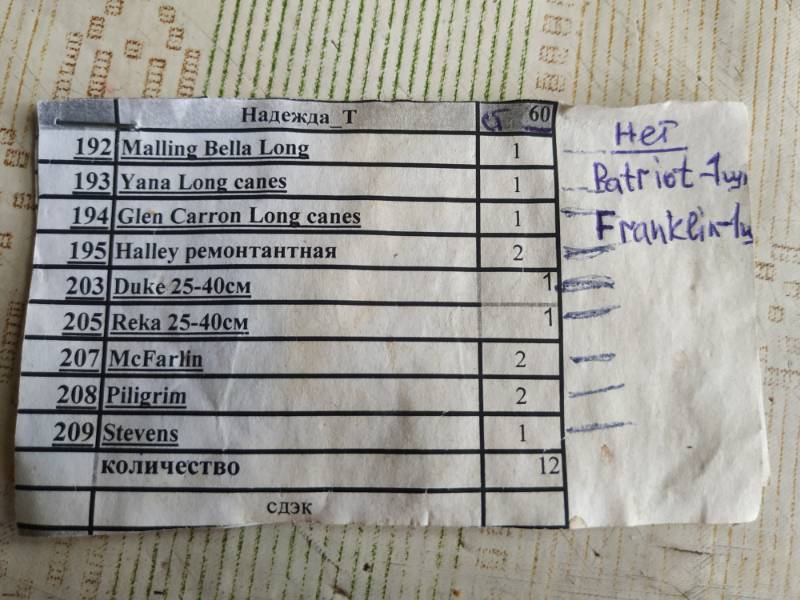 Надежда_Т 60
192 Malling Bella Long 1
193 Yana Long canes 1
194 Glen Carron Long canes 1
195 Halley ремонтантная 2
203 Duke 25-40см 1
205 Reka 25-40см 1
207 McFarlin 2
208 Piligrim 2
209 Stevens 1
количество 12
сдэк
Нет
Patriot-1шт
Franklin-1ш